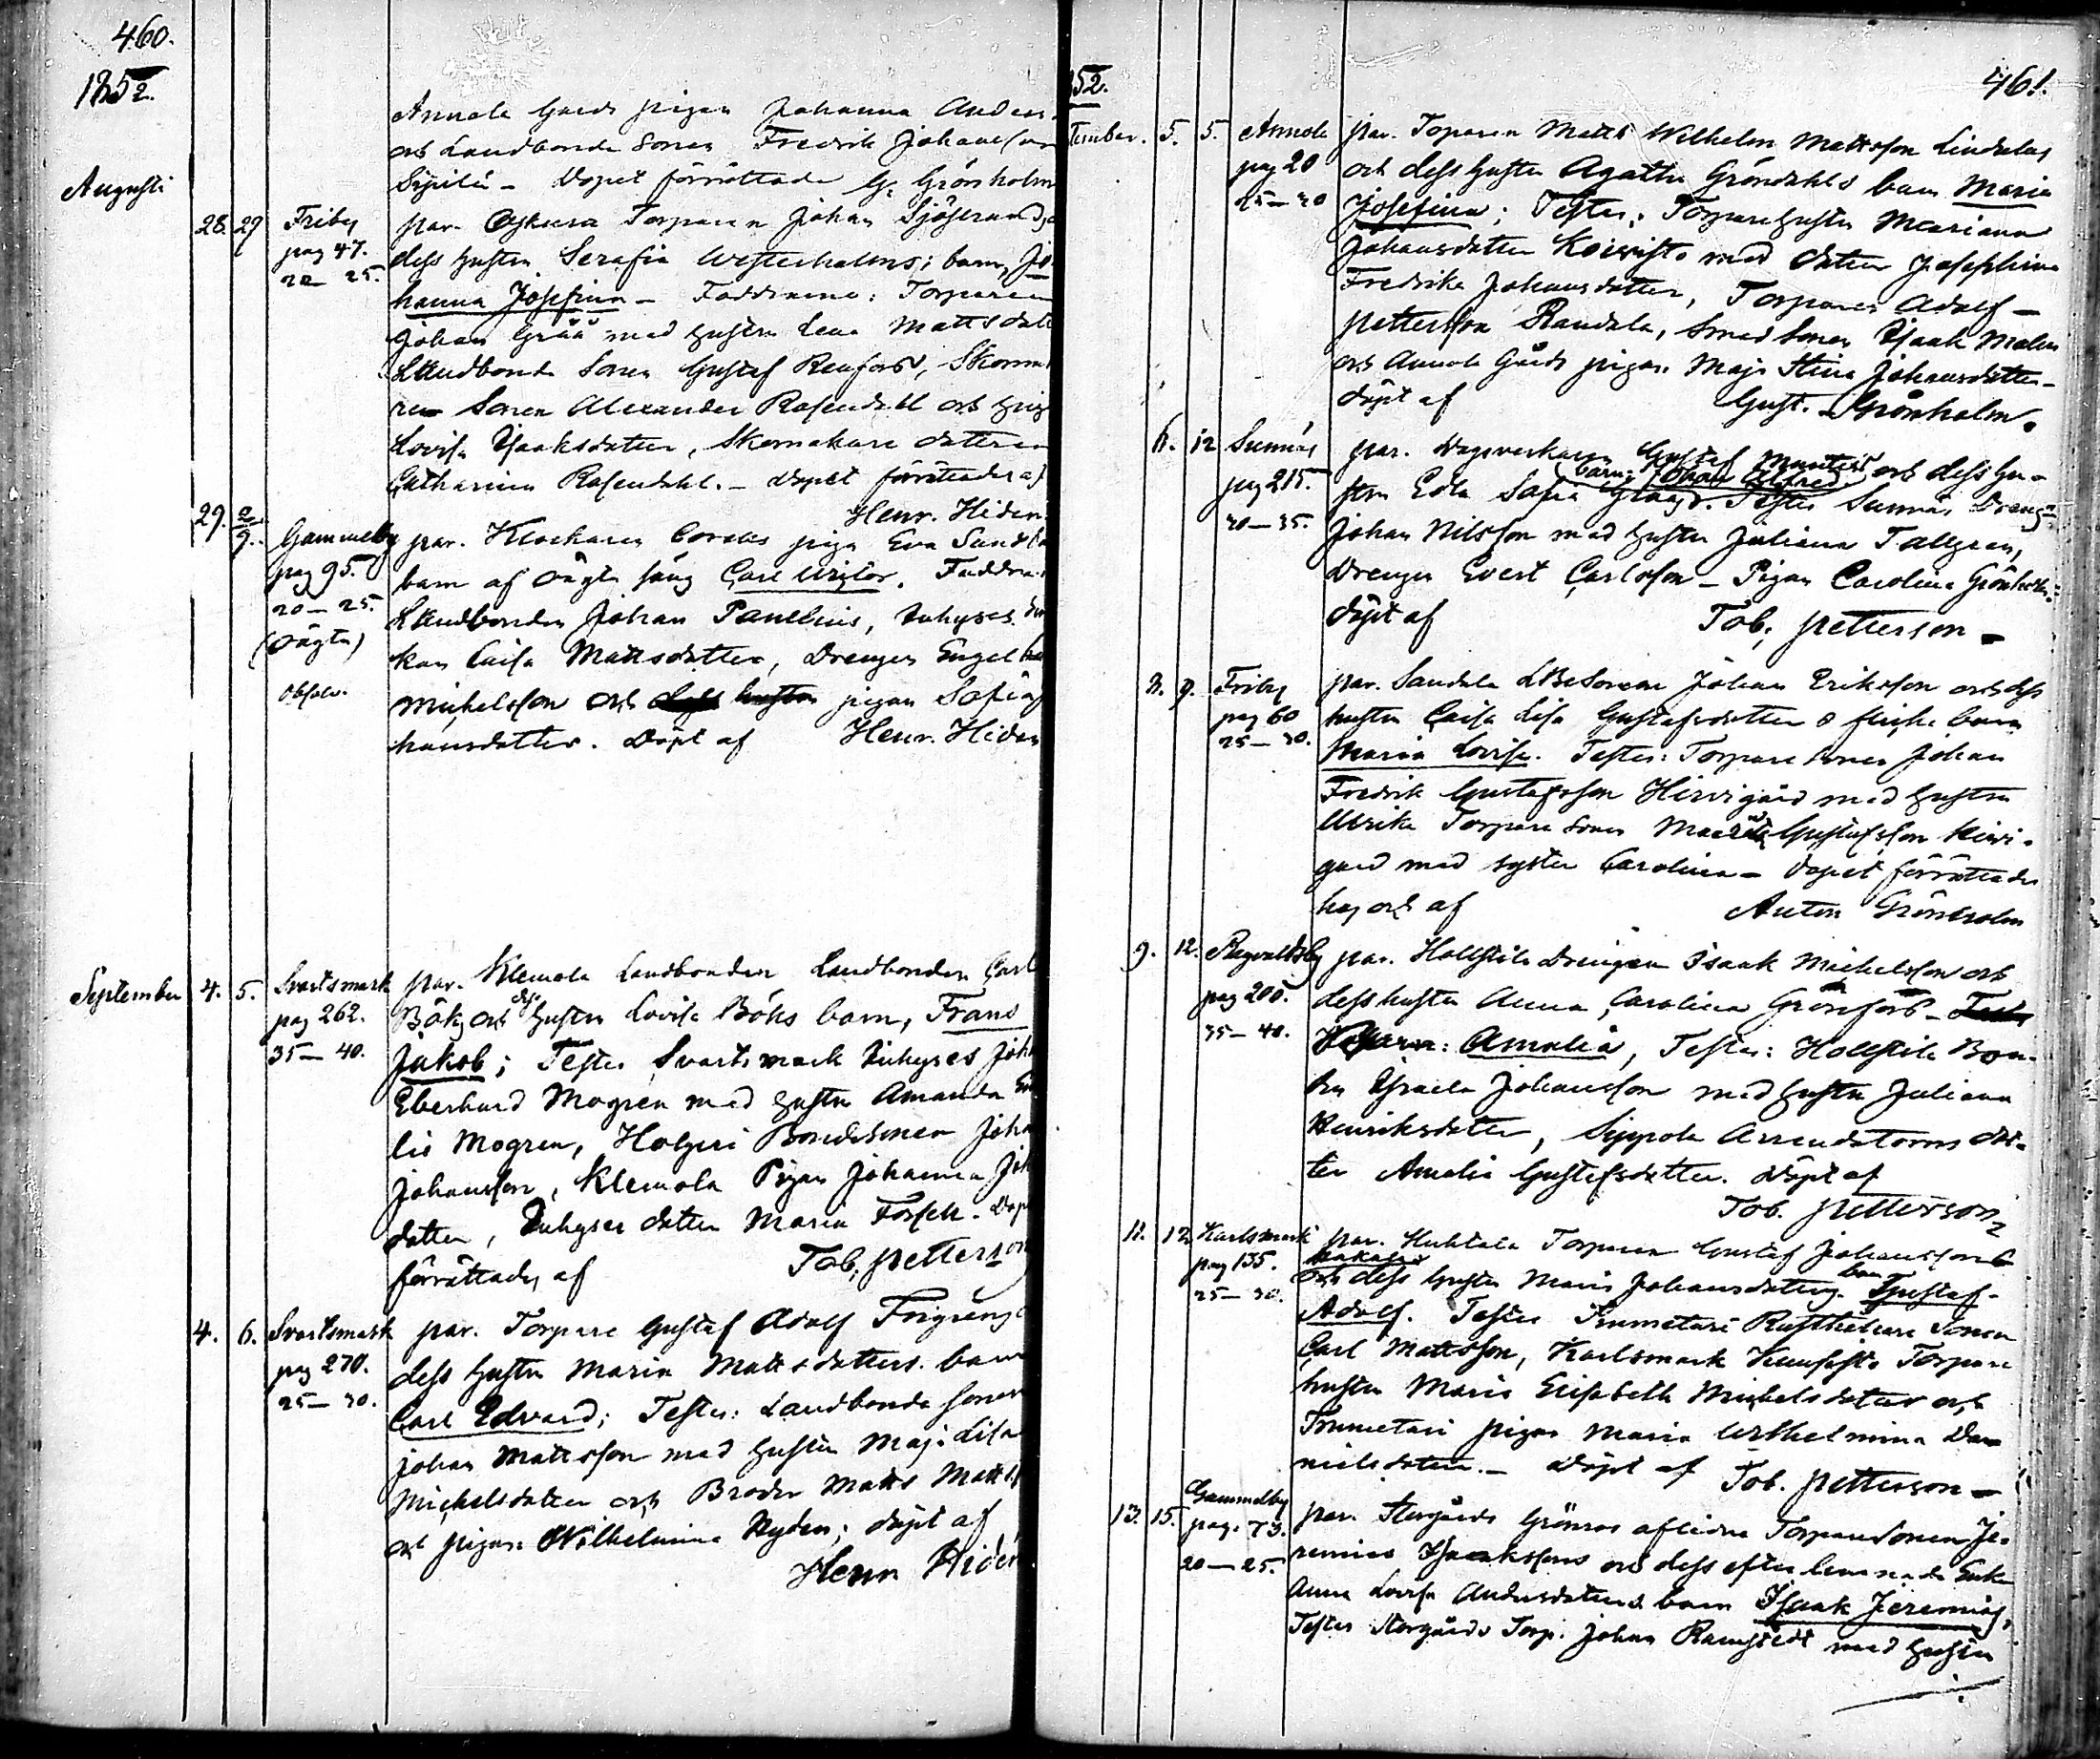 460.
1852.
Augusti
Annola Gårds pigan Johanna Anders-
och Landbonde Sonen Fredrik Johansson
Sipilä - Dopet förrättade G. Grönholm
28. 29 Friby par. Torparen Johan Sjöstrand
pag 47. dess hustru Serafia Westerholms; barn, Jo-
20 - 25. hanna Josefina - Faddrarne: Torparen
Johan Grää med hustru Lena Mattsdott
Landbonde Sonen Gustaf Renfors, Skoma
re Sonen Alexander Rosendahl och pig
Lovisa Isaksdotter, Skomakare dottren
Catharina Rosendahl. - Dopet förrättades af
Henr. Hiden.
29. 2/9. Gammelby par. Klockaren piga Eva Sand
pag 95. barn af oägta säng Carl Victor. Faddra
20 - 25. Landbonden Johan Paulinus, Inhyses
(oägta) kan Caisa Mattsdotter, Drengen Engel
Absolv. Michelsson och dess hustru pigan Sofia
hansdotter. Döpt af Henr. Hiden
September 4. 5. Svartsmark par. Klemola Landbonden Landbonden Carl
pag 262. Bök och dess hustru Lovisa Böks barn, Frans
35 - 40. Jakob; Testes Svartsmark Inhyses Joh
Eberhard Mogren med hustru Amanda
lia Mogren, Holgeri Bondesonen Joha
Johansson, Klemola Pigan Johanna Joh
dotter, Inhyses dotter Maria Forsell. Dop
förrättades af Tob. Petterson
4. 6. Svartsmark par. Torpare Gustaf Adolf Frigrens
pag 270. dess hustru Maria Mattsdotters barn
25 - 30. Carl Edvard; Testes: Landbonde Sonen
Johan Mattsson med hustru Maja Lisa
Michelsdotter och Broder Matts Matts
och pigan Wilhelmina Nyden; döpt af
Henr Hiden
852.
461.
tember. 5. 5. Annola par. Torparen Matts Wilhelm Mattsson Lindelas
pag 20 och dess hustru Agatha Gröndahls barn Maria
25 - 30 Josefina; Testes: Torpare hustru Mariana
Johansdotter Koivisto med dotter Josephina
Fredrika Johansdotter, Torparen Adolf -
Pettersson Randala, Smed Sonen Isaak Malm
och Annola Gårds pigan Maja Stina Johansdotter -
döpt af Gust. Grönholm.
6. 12 Sunnäs par. Dagsverkaren Gustaf Munters och dess hu-
barn: Johan Alfred
pag 215. stru Eda Sofia Testes Sunnäs Dreng
30 - 35. Johan Nilsson med hustru Juliana Tallgren,
Drengen Evert Carlsson - Pigan Carolina Grönholm
döpt af Tob. Petterson -
8. 9. Friby par. Sandela LBeSonen Johan Eriksson och dess
pag 60 hustru Caisa Lisa Gustafsdotters flicke barn
25 - 30. Maria Lovisa. Testes: Torpare Sonen Johan
Fredrik Gustafsson Hirvigård med hustru
Ulrika Torpare Sonen Gustafsson Hirvi-
gård med syster Carolina - Dopet förrättades
hos och af Anton Grönholm
9. 12. Ragvaldsby par. Hollstila Drengen Isaak Michelsson och
pag 200. dess hustru Anna Carolina Grönfors -
35 - 40. barn: Amalia, Testes: Hollstila Bon-
den Israel Johansson med hustru Juliana
Henriksdotter, Sippola Arrendatorns dot-
ter Amalia Gustafsdotter. Döpt af
Tob. Petterson
11. 12. Karlsmark par. Huhtala Torparen Gustaf Johansson
pag 135. och dess hustru Maria Johansdotters barn Gustaf
25 - 30. Adolf. Testes Trumetari Rusthållare Sonen
Carl Mattsson, Karlsmark Torpare
hustru Maria Elisabeth Michelsdotter och
Trumetari pigan Maria Wilhelmina Da-
nielsdotter. - Döpt af Tob. Petterson -
13. 15. Gammelby par. Storgårds Grönros aflidne TorpareSonen Je-
pag. 73. remias Isaakssons och dess efterlemnade Enka
20 - 25. Anna Lovisa Andersdotters barn Isaak Jeremias,
Testes Storgårds Torp. Johan Ramstedt med hustru